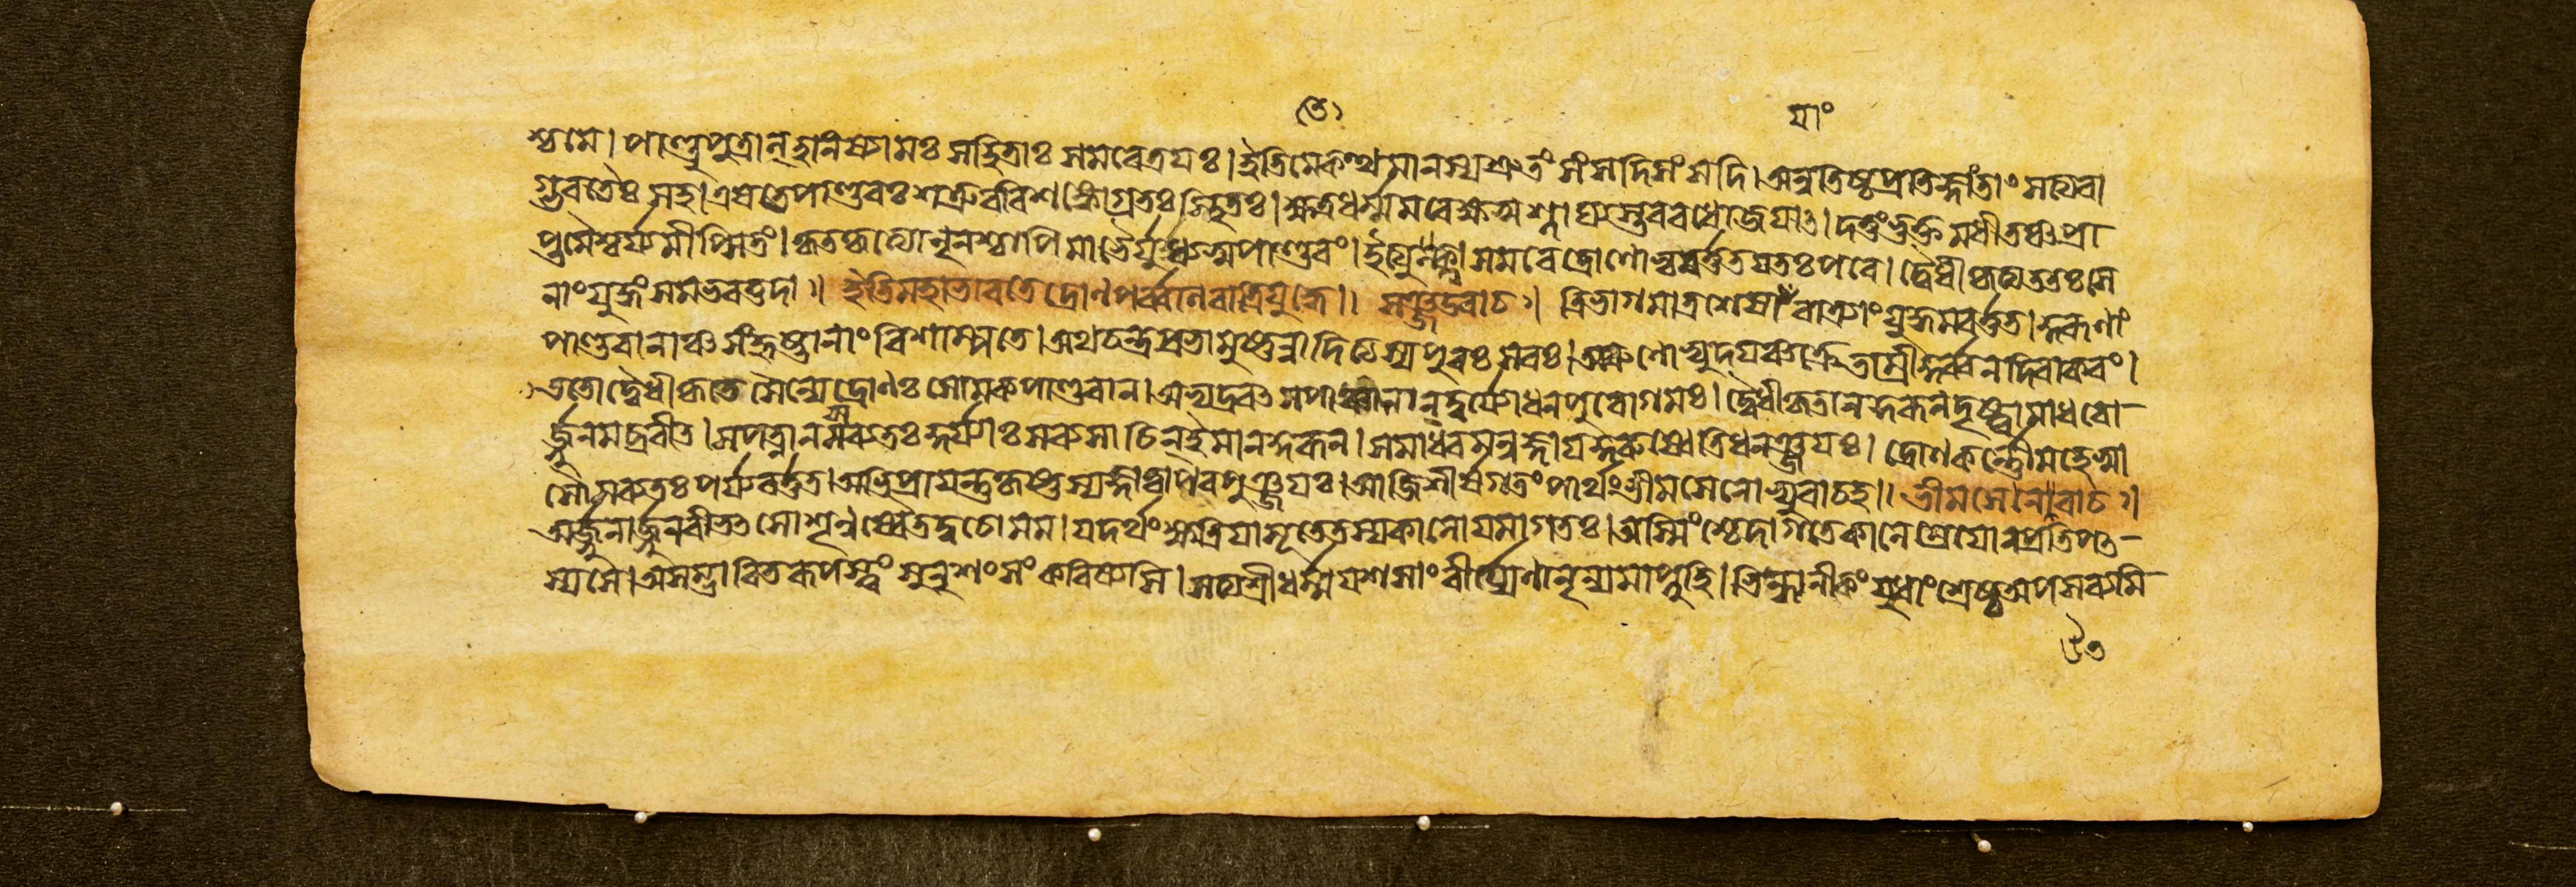 তে যাং
শ্চমে। পাণ্ডুপুত্রান্হনিষ্যামঃ সহিতাঃ সমরেত্রযঃ। ইতিমেকত্থমানস্যশ্রুতং সংসদিসংসদি। অনুতিষ্ঠপ্রতিজ্ঞাংতাং সত্যবা
গ্ভবতৈঃ সহ। এষতেপাণ্ডবঃ শত্রুরবিশঙ্কোগ্রতঃস্থিতঃ। ক্ষত্রধর্ম্মমবেক্ষস্ব শ্লাঘ্যস্তববধোজযাৎ। দত্তংভুক্তমধীতঞ্চপ্রা
প্তমৈশ্বর্য্যমীপ্সিতং। কৃতকৃত্যোনৃনশ্চাসি মাভৈর্যুধ্যস্বপাণ্ডবং। ইত্যুক্ত্বা সমরেদ্রোণোন্যবর্ত্ততযতঃপরে। দ্বৈধীকৃত্যততঃসে
নাংযুদ্ধং সমভবত্তদা॥ ইতিমহাভারতে দ্রোণপর্ব্বনিরাত্রিযুদ্ধে॥ সঞ্জযউবাচ॥ ত্রিভাগমাত্রশেষাযাং রাত্র্যাং যুদ্ধমবর্ত্তত। কুরূণাং
পাণ্ডবানাঞ্চ সংহৃষ্টানাং বিশাম্পতে। অথচন্দ্রপ্রভামুষ্ণন্নাদিত্যস্যপুরঃ সরঃ। অরুণোভ্যুদযঞ্চক্রেতাম্রীকুর্ব্বন্নদিবাকরং।
ততোদ্বৈধীকৃতে সৈন্যেদ্রোণঃ সোমকপাণ্ডবান। অভ্যদ্রবৎ সপাঞ্চালান্ দুর্য্যোধনপুরোগমঃ। দ্বৈধীকৃতান্ কুরূনদৃষ্ট্বামাধবো
র্জ্জুনমব্রবীত। সপত্নানসব্যতঃ কুর্য্যাঃ সব্যসাচিন্ইমানকুরূন। সমাধবমনুজ্ঞাযকুরুষ্বেতিধনঞ্জযঃ। দ্রোণকর্ণ্ণৌমহেষ্বা
সৌসব্যতঃ পর্য্যবর্ত্তত। অভিপ্রাযন্তুকৃষ্ণস্যজ্ঞাত্বাপরপুরঞ্জযঃ। আজিশীর্ষগতংপার্থং ভীমসেনোভ্যুবাচহ॥ ভীমসেনউবাচ॥
অর্জ্জুনার্জ্জুনবীভৎসোশৃনুষ্বৈতদ্বচোমম। যদর্থং ক্ষত্রিযাসূতেতস্যকালোযমাগতঃ। অস্মিংশ্চেদাগতেকালে শ্রেযোনপ্রতিপৎ
স্যসে। অসম্ভাবিতরূপস্ত্বং সুনৃশংসং করিষ্যসি। সত্যশ্রীধর্ম্মযশসাং বীর্য্যেণানৃন্যমাপ্নুহি। ভিন্ধ্যনীকংযুধাংশ্রেষ্ঠঅপসব্যমি